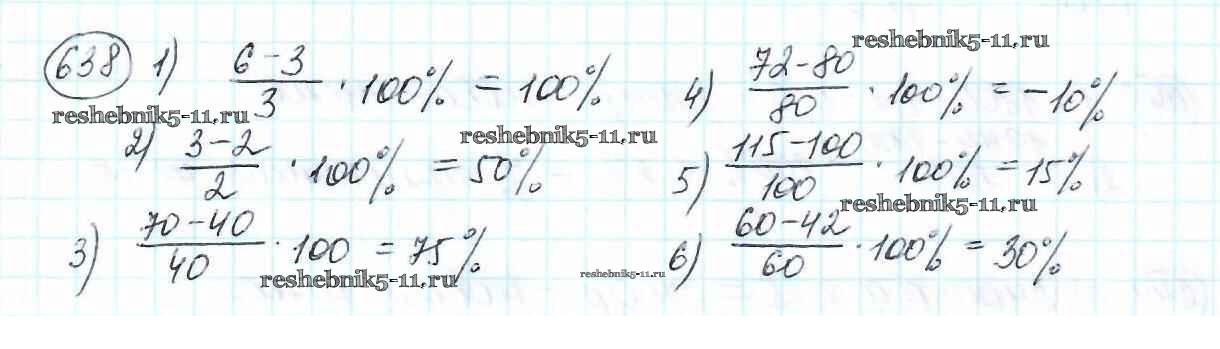 638 1) (6-3)/3 · 100% = 100%
reshebnik5-11.ru
2) (3-2)/2 · 100% = 50%
reshebnik5-11.ru
3) (70-40)/40 · 100 = 75%
reshebnik5-11.ru
reshebnik5-11.ru
4) (72-80)/80 · 100% = -10%
5) (115-100)/100 · 100% = 15%
reshebnik5-11.ru
6) (60-42)/60 · 100% = 30%
reshebnik5-11.ru